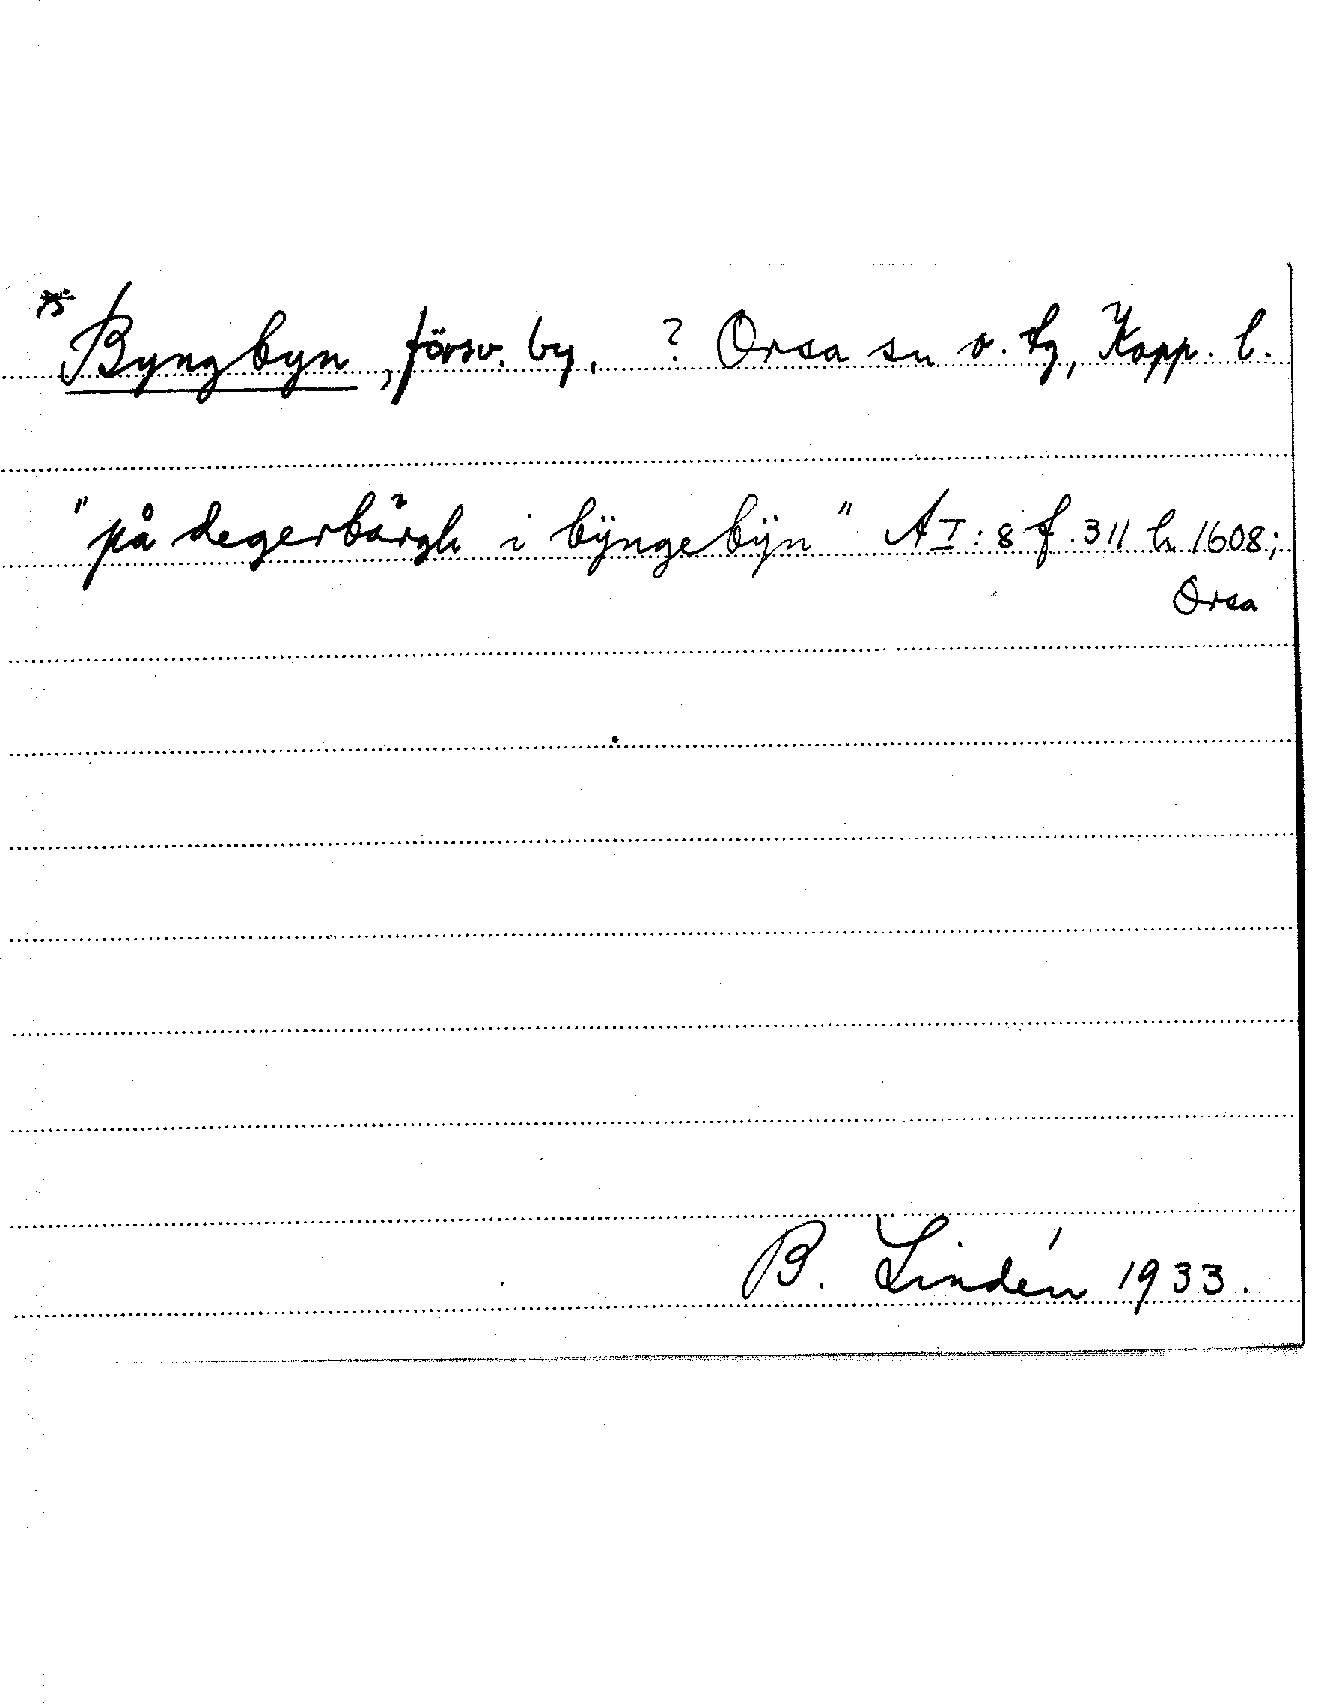 * Byngbyn, försv. by. ? Orsa sn o. tg, Kopp. l.
"på degerbårgh i bÿngebÿn" A I: 8 f. 311 h 1608;
Orsa
B. Lindén 1933.